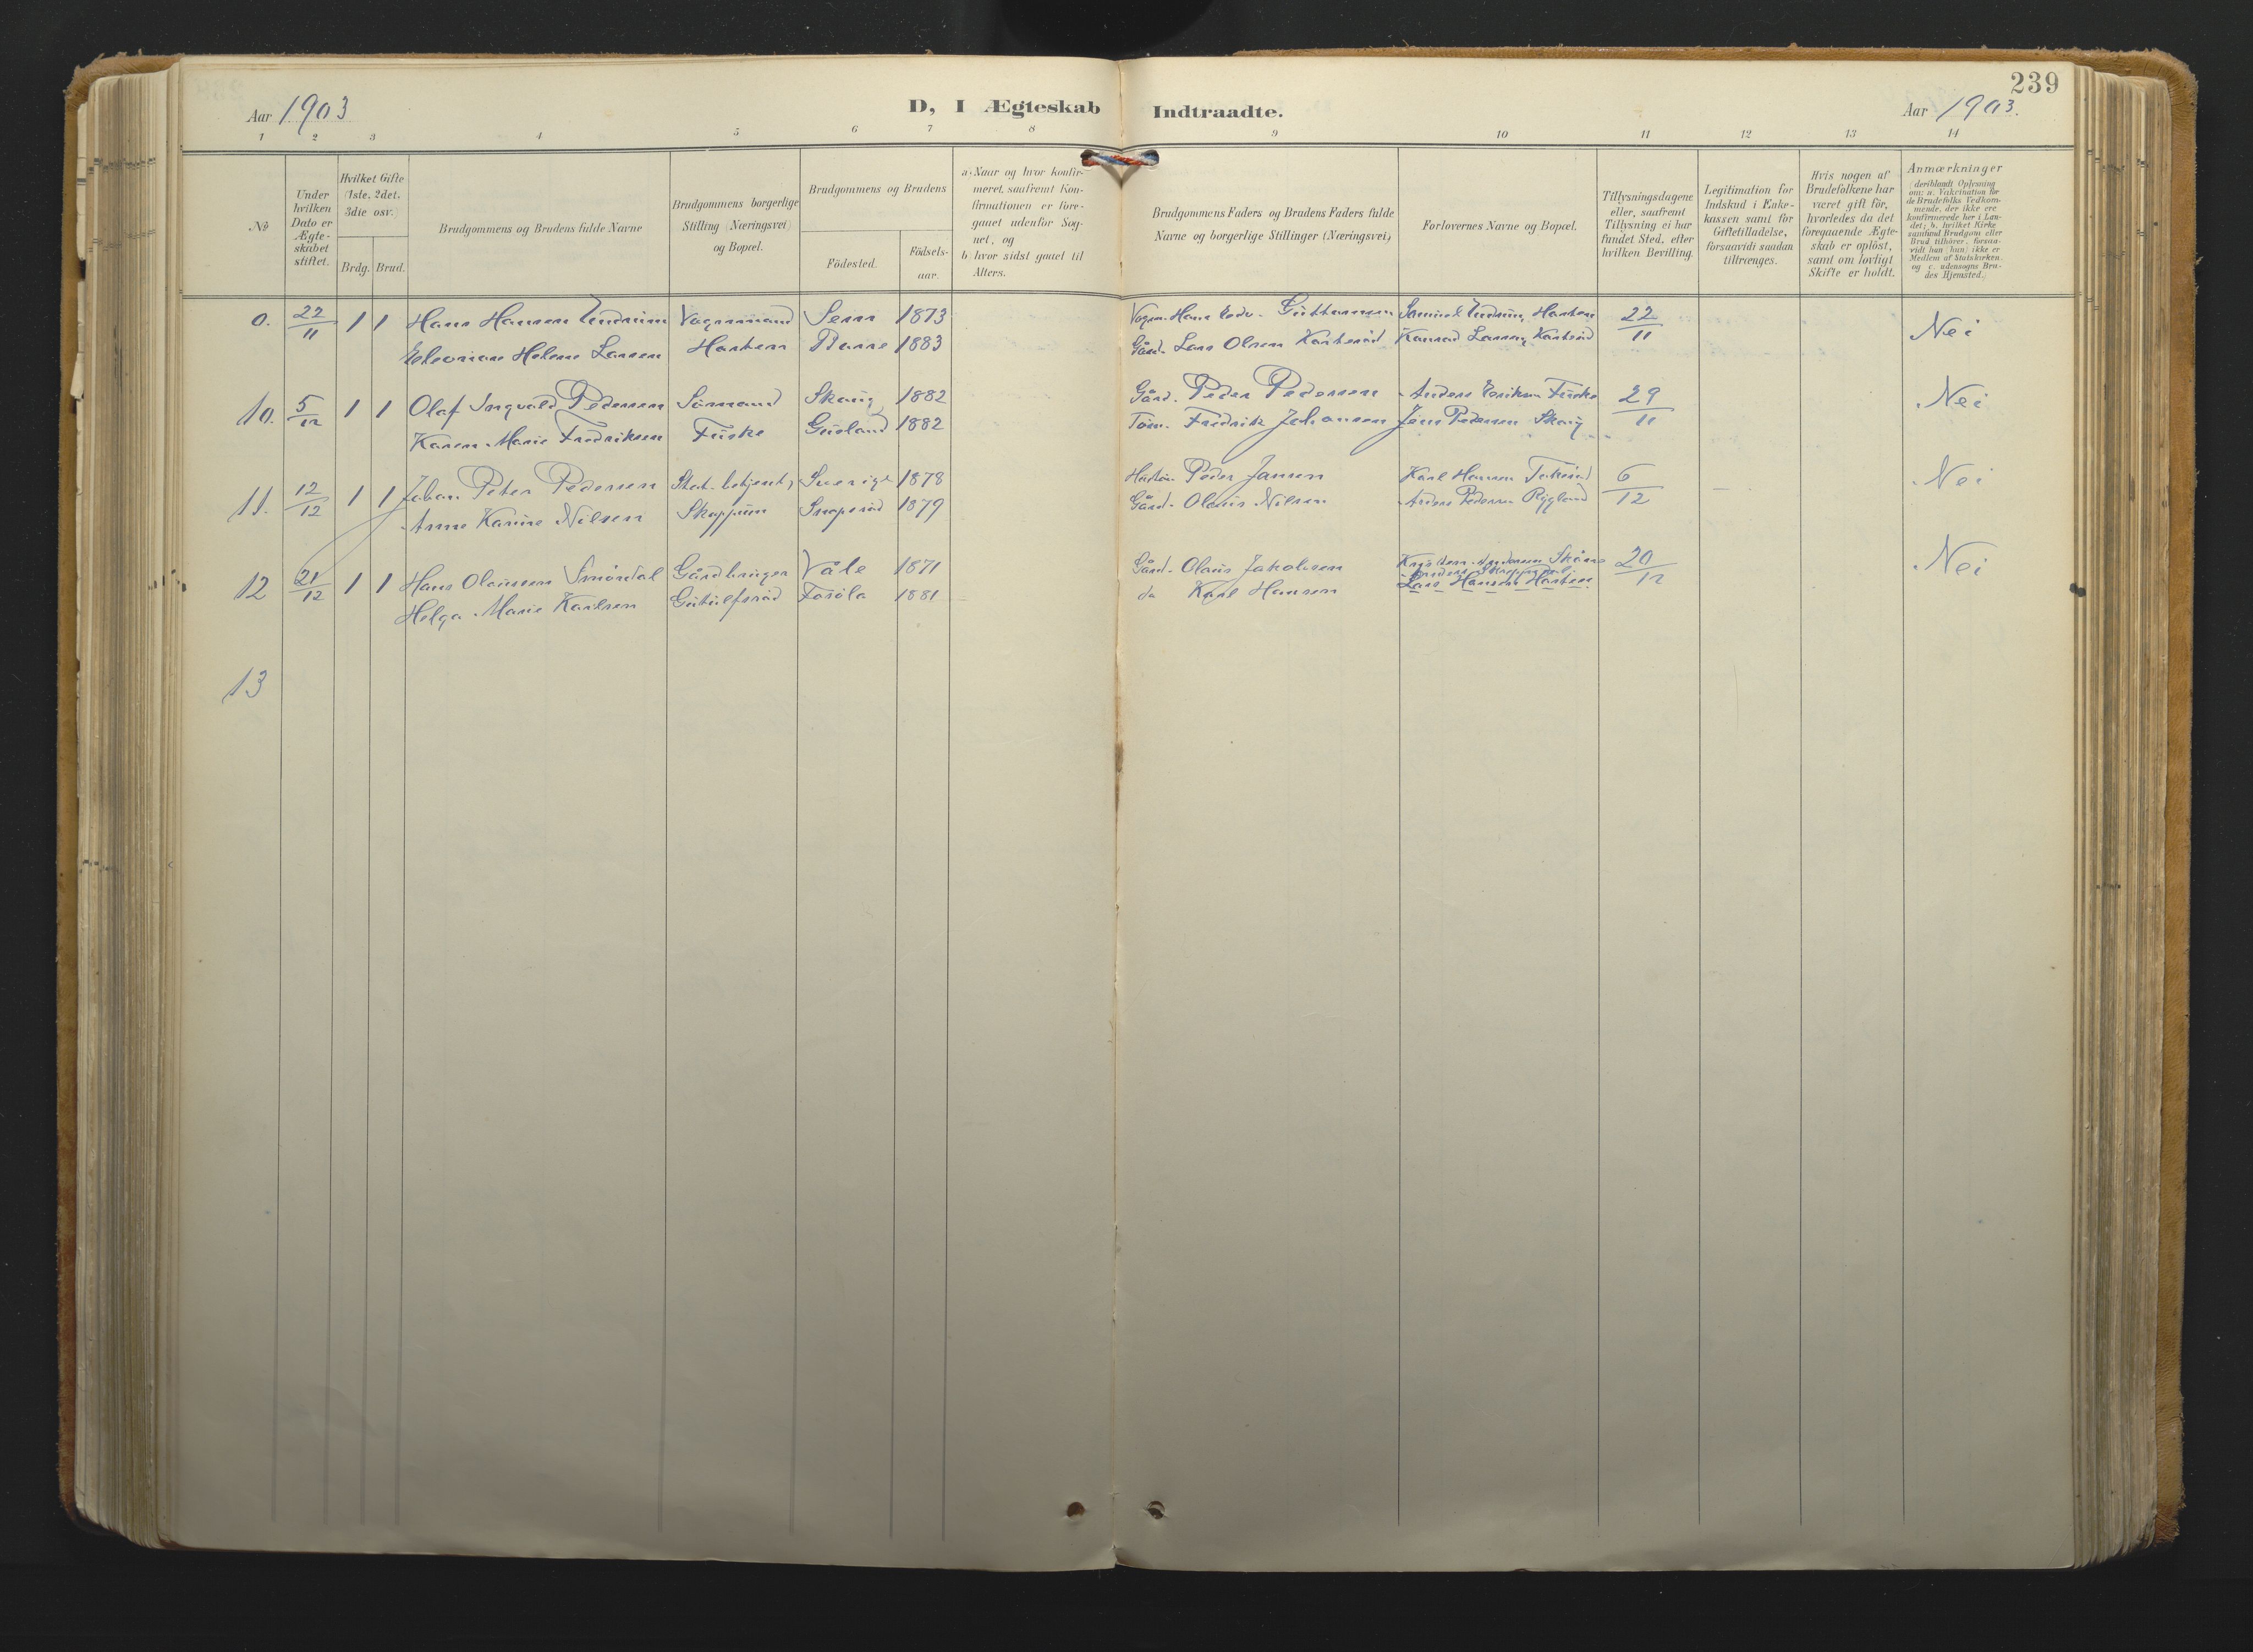 239
Aar 1903
D, I Ægteskab Indtraadte.
Aar 1903.
1 2 3 4 5 6 7 8 9 10 11 12 13 14
No
Under hvilken Dato er Ægteskabet stiftet.
Hvilket Gifte (1ste, 2det, 3die osv.)
Brdg. Brud.
Brudgommens og Brudens fulde Navne
Brudgommens borgerlige Stilling (Næringsvei) og Bopæl.
Brudgommens og Brudens
Födested.
Födsels-aar.
a) Naar og hvor konfir-
meret, saafremt Kon-
firmationen er fore-
gaaet udenfor Sog-
net, og
b) hvor sidst gaaet til
Alters.
Brudgommens Faders og Brudens Faders fulde
Navne og borgerlige Stillinger (Næringsvei)
Forlovernes Navne og Bopæl.
Tillysningsdagene
eller, saafremt
Tillysning ei har
fundet Sted, efter
hvilken Bevilling.
Legitimation for
Indskud i Enke-
kassen samt for
Giftetilladelse,
forsaavidt saadan
tiltrænges.
Hvis nogen af
Brudefolkene har
været gift för,
hvorledes da det
foregaaende Ægte-
skab er oplöst,
samt om lovligt
Skifte er holdt.
Anmærkninger
(deriblandt Oplysning
om: a. Vakcination for
de Brudefolks Vedkom-
mende, der ikke ere
konfirmerede her i Lan-
det; b. hvilket Kirke
samfund Brudgom eller
Brud tilhører, forsaa-
vidt han (hun) ikke er
Medlem af Statskirken,
og c. udensogns Bru-
des Hjemsted.)
22/11 1 1 Hans Hansen Undrum Vognmand Sem 1873 Vogn. Hans Edv. Guttormsen Undrum, Horten 22/11 Nei
Helene Larsen Horten Borre 1883 Gård. Lars Olsen Konrad Larsen,
10. 5/12 1 1 Olaf Ingvald Pedersen Sömand Skaug 1882 Gård. Peder Pedersen Anders Eriksen Fuske 29/11 Nei
Karen Marie Fredriksen Fuske 1882 Töm. Fredrik Johansen Jens Pedersen Skaug
11. 12/12 1 1 Johan Peter Pedersen Stat. betjent, Sverige 1878 Peder Jansen Karl Hansen 6/12 Nei
Anne Karine Nilsen Skoppum Snapsröd 1879 Gård. Olaus Nilsen Anders Pedersen
12 21/12 1 1 Hans Olaussen Smördal Gårdbruger Våle 1871 Gård. Olaus Jakobsen 20/12 Nei
Helga Marie Karlsen 1881 do Karl Hansen Lars Hansen Horten
13